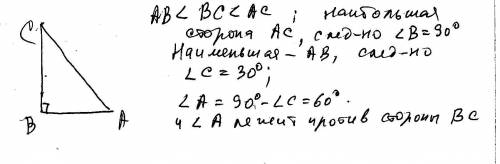 AB < BC < AC ; наибольшая
сторона AC, след-но ∠B = 90°
Наименьшая - AB, след-но
∠C = 30°;
∠A = 90° - ∠C = 60°.
и ∠A лежит против стороны BC
C
B
A